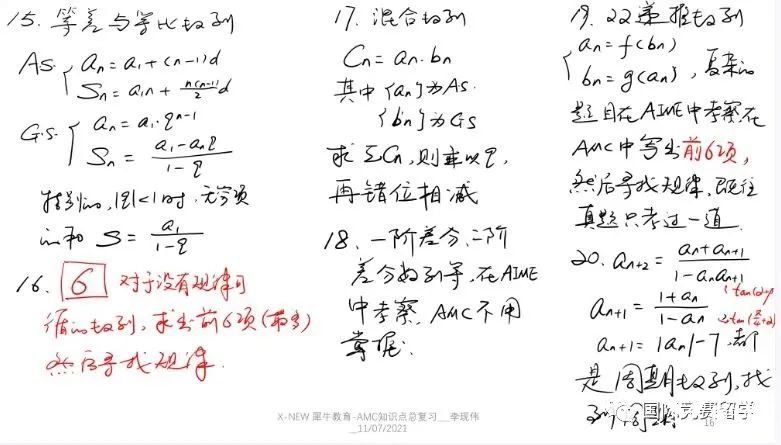 15. 等差与等比数列
A.S. { an = a1 + (n-1)d
Sn = a1n + n(n-1)/2 d
G.S. { an = a1·q^(n-1)
Sn = (a1 - anq)/(1 - q)
特别的, |q|<1时, 无穷项
的和 S = a1/(1 - q)
16. 6 对于没有规律可
循的数列, 求出前6项(最多)
然后寻找规律.
17. 混合数列
Cn = an·bn
其中{an}为A.S.
{bn}为G.S
求ΣCn, 则乘以q,
再错位相减
18. 一阶差分、二阶
差分数列等, 在AIME
中考察, AMC不用
掌握.
19. 双递推数列
{ an = f(bn)
bn = g(an), 复杂的
题目在AIME中考察在
AMC中写出前6项,
然后寻找规律. 既往
真题只考过一道.
20. an+2 = (an + an+1)/(1 - an an+1)
an+1 = (1 + an)/(1 - an)
an+1 = |an| - 7, 都
是周期数列, 找
到周期
国际竞赛留学
X-NEW 犀牛教育-AMC知识点总复习__李现伟
_11/07/2021
16